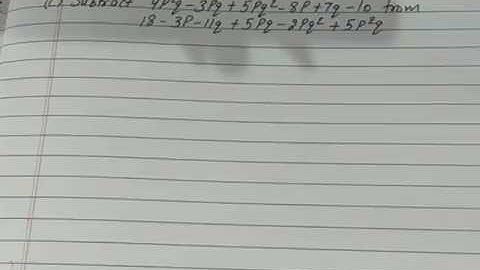 (c) Subtract 4P²q - 3Pq + 5Pq² - 8P + 7q - 10 from
18 - 3P - 11q + 5Pq - 2Pq² + 5P²q